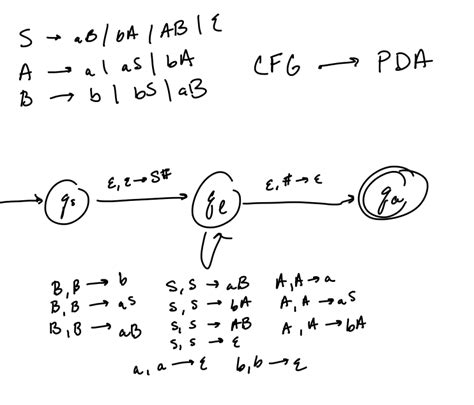 S → aB | bA | AB | ε
A → a | aS | bA
B → b | bS | aB
CFG → PDA
ε, ε → S#
ε, # → ε
qs
qe
qa
B, B → b
B, B → aS
B, B → aB
S, S → aB
S, S → bA
S, S → AB
S, S → ε
A, A → a
A, A → aS
A, A → bA
a, a → ε
b, b → ε